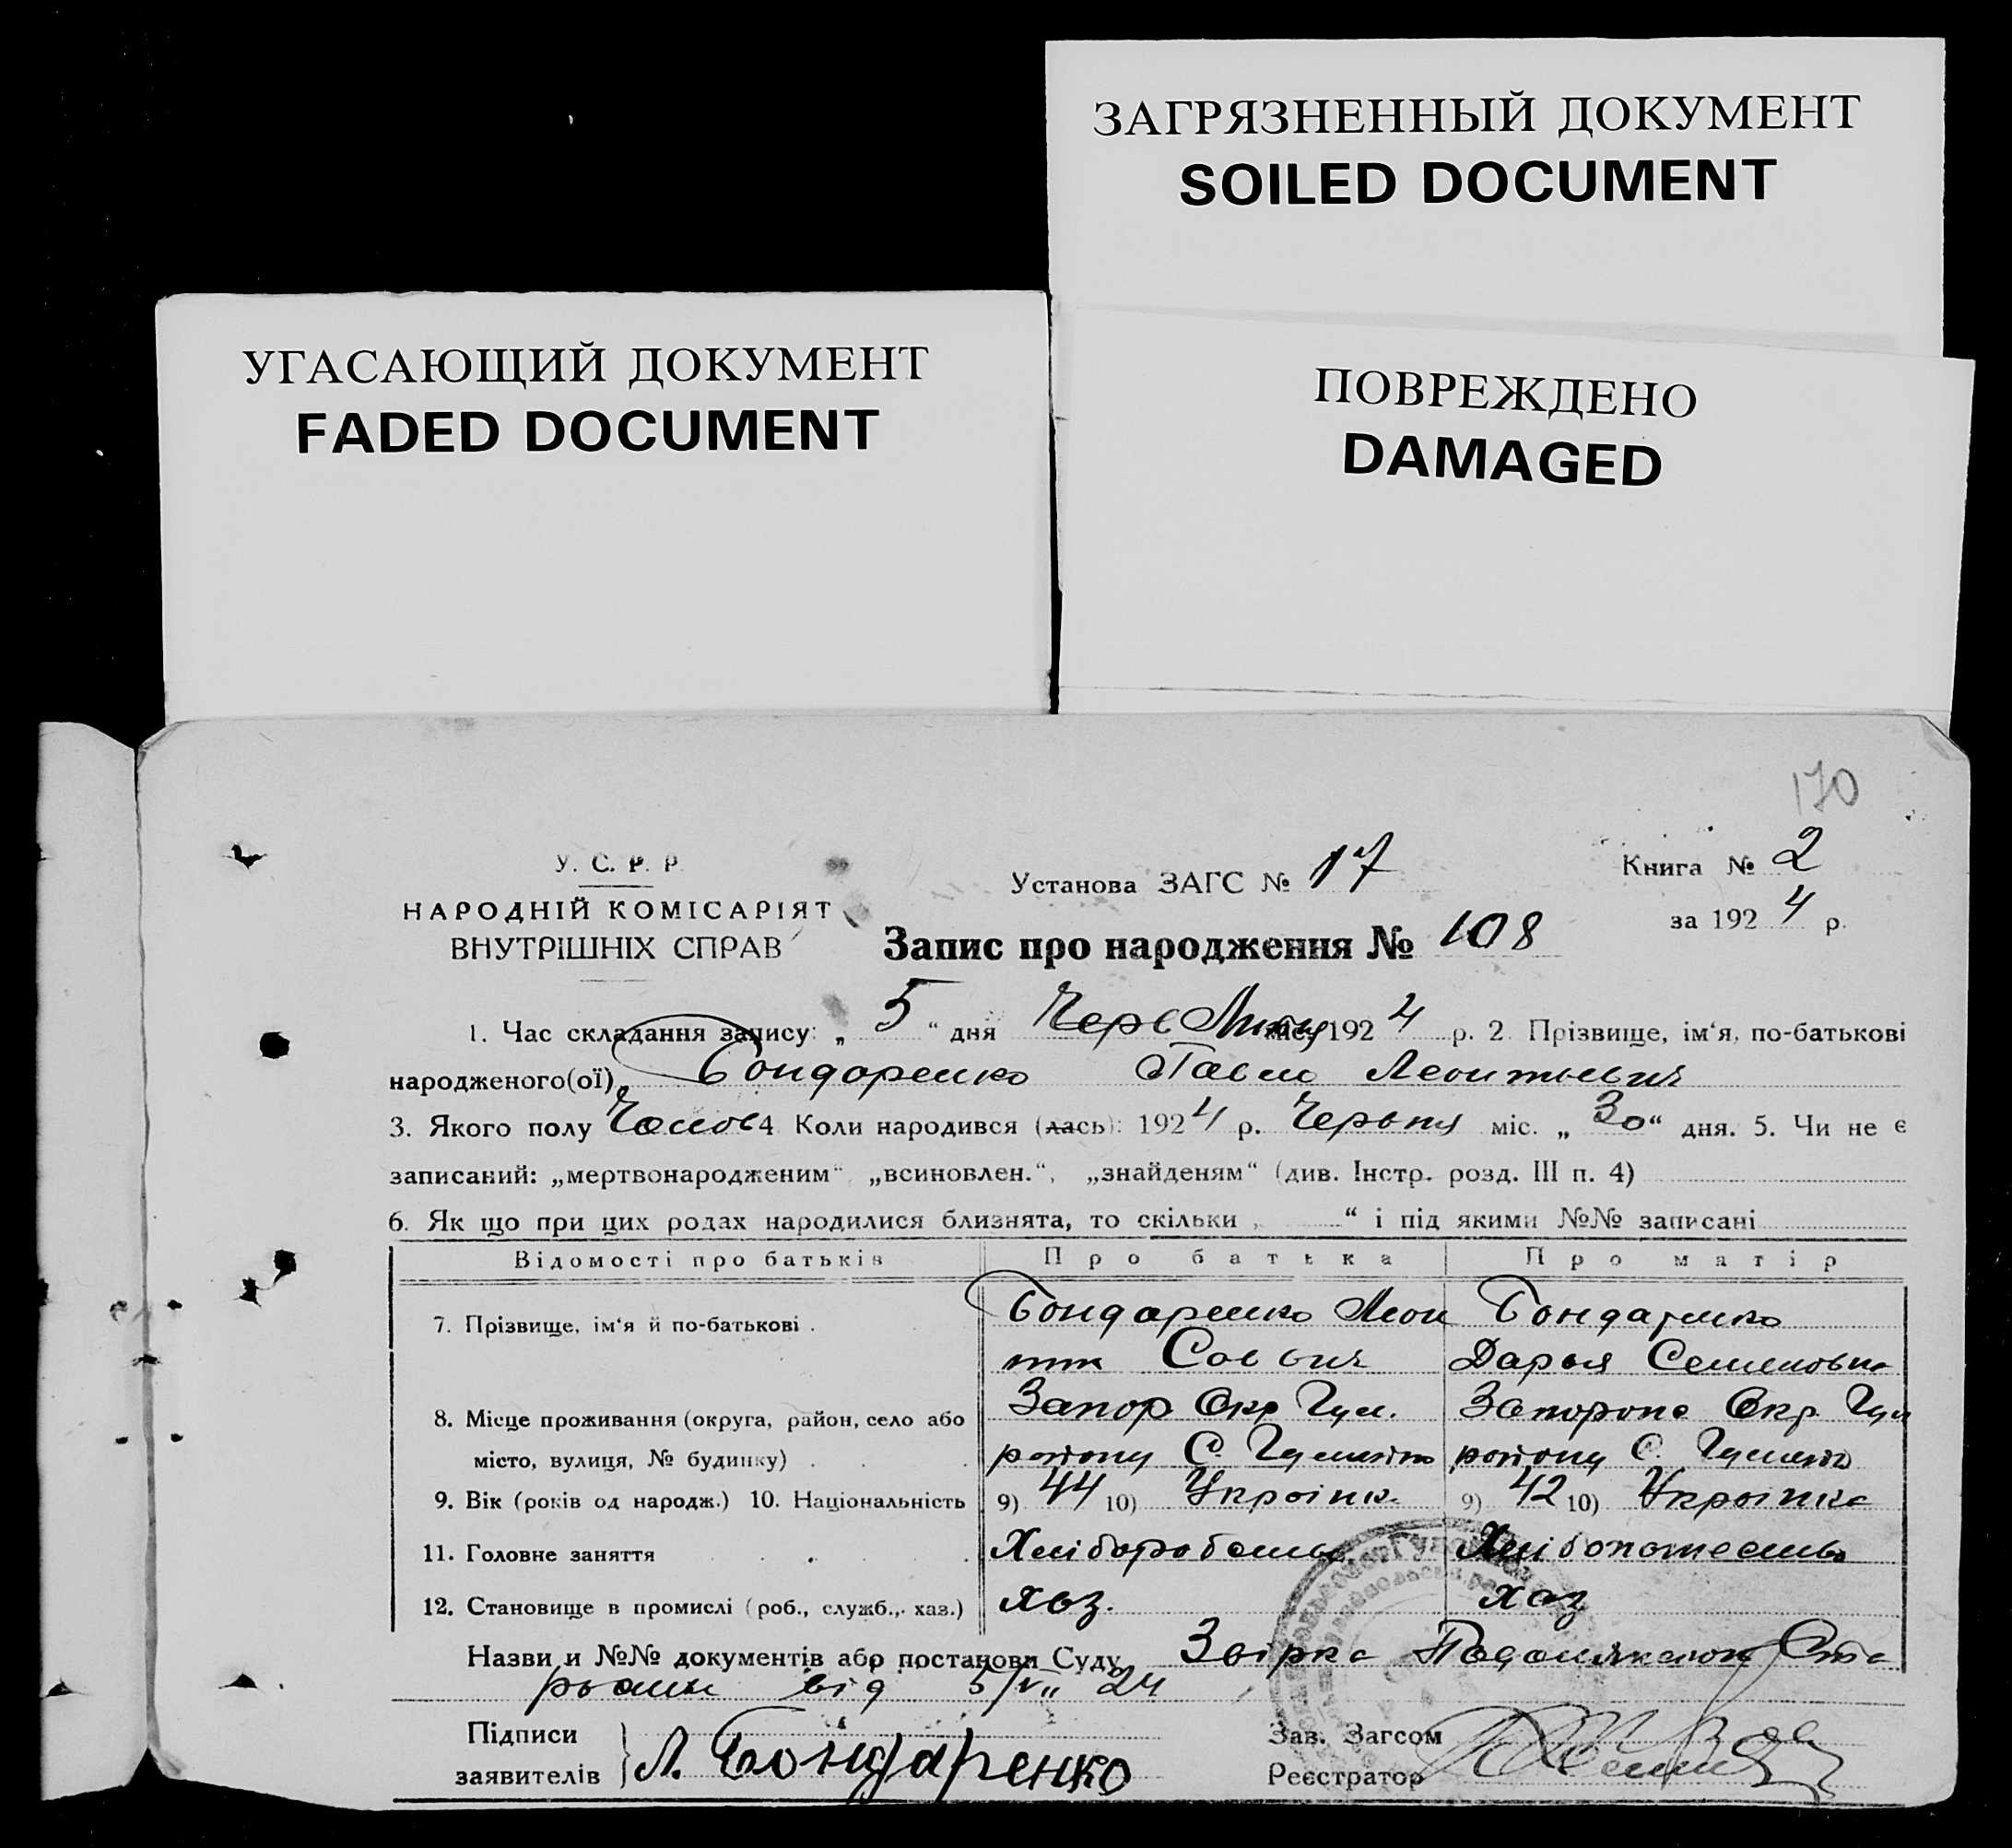 ЗАГРЯЗНЕННЫЙ ДОКУМЕНТ
SOILED DOCUMENT
УГАСАЮЩИЙ ДОКУМЕНТ
FADED DOCUMENT
ПОВРЕЖДЕНО
DAMAGED
170
У. С. Р. Р.
НАРОДНІЙ КОМІСАРІЯТ
ВНУТРІШНІХ СПРАВ
Установа ЗАГС № 17
Книга № 2
за 1924 р.
Запис про народження № 108
1. Час складання запису: „ 5 “ дня Черв Липця міс. 1924 р. 2. Прізвище, ім‘я, по-батькові
народженого(ої) Бондаренко Павло Леонтьевич
3. Якого полу Чолов 4 Коли народився (лась): 1924 р. Червня міс. „ 30 “ дня. 5. Чи не є
записаний: „мертвонародженим“ „всиновлен.“, „знайденям“ (див. Інстр. розд. III п. 4)
6. Як що при цих родах народилися близнята, то скільки „ “ і під якими №№ записані
Відомості про батьків Про батька Про матір
7. Прізвище, ім‘я й по-батькові . Бондаренко Леон Бондаренко
тій Саввич Дарья Семеновна
8. Місце проживання (округа, район, село або Запор Окр Гул. Запорож Окр. Гул
місто, вулиця, № будинку) . . . району С. району С.
9. Вік (років од народж.) 10. Національність 9) 44 10) Україн. 9) 42 10) Українка
11. Головне заняття . . . Хліборобство
12. Становище в промислі (роб., служб., хаз.) хоз. хаз
Назви и №№ документів або постанови Суду Звірка
від 5/VII 24
Підписи
заявителів } Л. Бондаренко
Зав. Загсом
Реєстратор